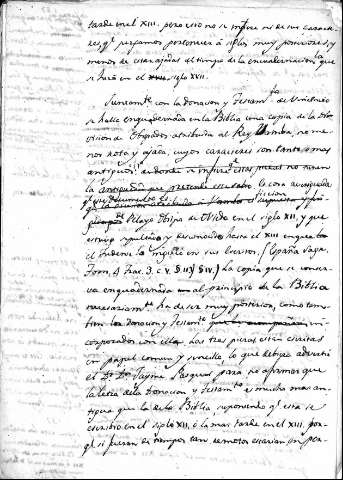 tarde en el XIII. pero eso no se infiere ni de sus caracte-
res, qe juzgamos pertenecer a siglos muy posteriores, y
menos de esas ajadas al tiempo de la encuadernacion, qe
se haria en el siglo XVII.
Juntamte con la donacion y Testamto de Vincencio
se halla enquadernada en la Biblia una copia de la Di-
vision de Obispados atribuida al Rey Wamba, no me-
nos rota y ajada, cuyos caracteres son tanto o mas
antiguos:
Pelayo Obispo de Oviedo en el siglo XII, y que
estuvo y desconocida hasta el XIII en que
el en sus escritos. (España Sagr.
Tom. 4 trat. 3. c. V. § II y § IV.) La copia que se conser-
va enquadernada al principio de la Biblia
necesariamte ha de ser muy posterior, como tam-
bien la donacion y Testamto in-
corporados con ella. Las tres piezas estan escritas
en papel comun y sencillo lo que debiera advertir
el Sr. Dn. Jayme Pasqual para no afirmar que
la letra de la Donacion y Testamto es mucho mas an-
tigua que la de la Biblia, suponiendo qe esta se
escribio en el siglo XII, o lo mas tarde en el XIII. por-
qe si fueran de tiempos tan remotos estarian en per-